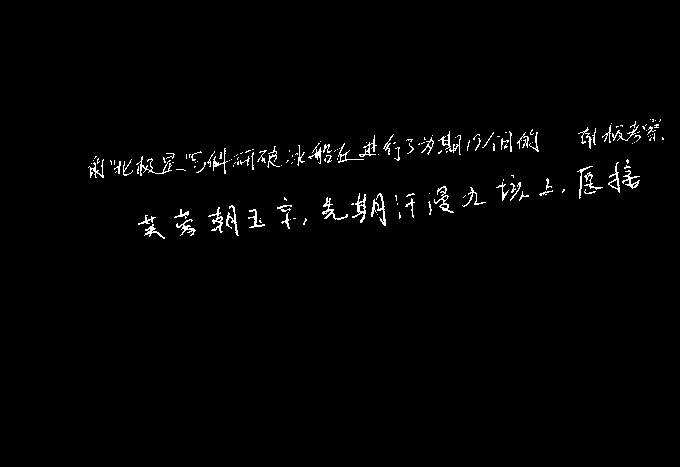 的“北极星”号科研破冰船在进行了为期19个月的 南极考察
芙蓉朝玉京,先期汗漫九垓上,愿接